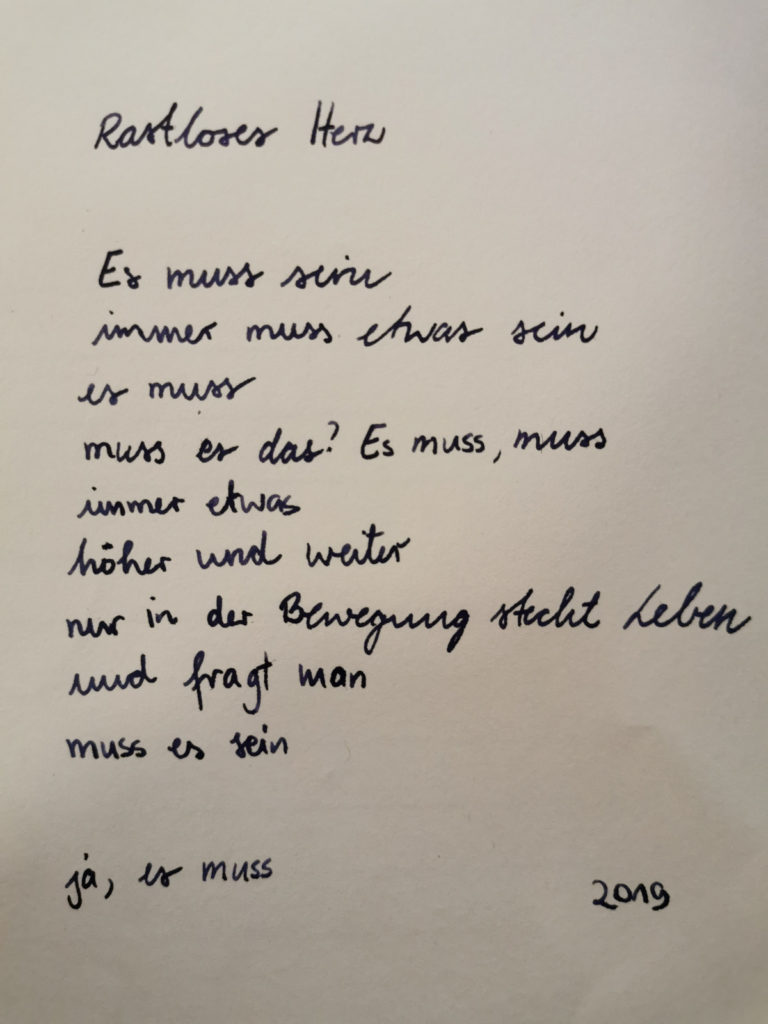 Rastloses Herz
Es muss sein
immer muss etwas sein
es muss
muss es das? Es muss, muss
immer etwas
höher und weiter
nur in der Bewegung steckt Leben
und fragt man
muss es sein
ja, es muss
2019